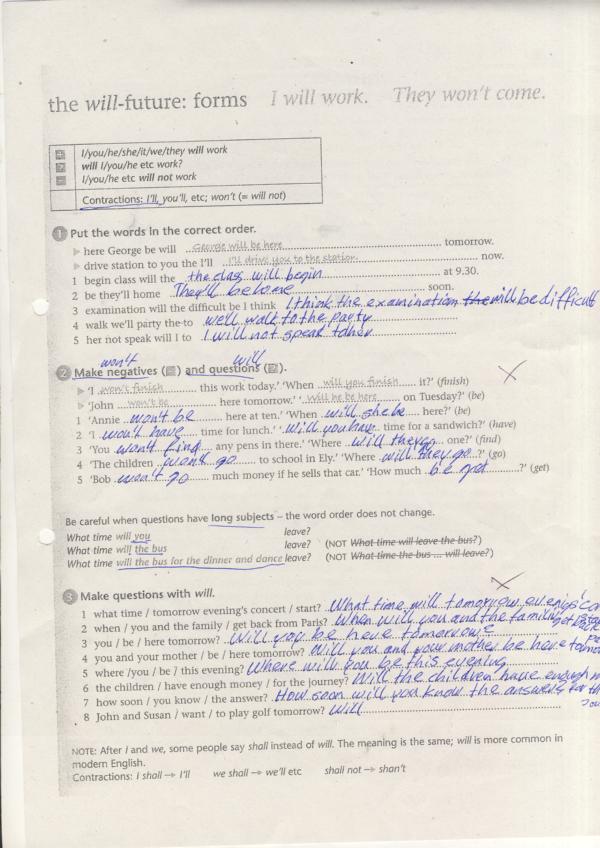 the will-future: forms I will work. They won't come.
I/you/he/she/it/we/they will work
will I/you/he etc work?
I/you/he etc will not work
Contractions: I'll, you'll, etc; won't (= will not)
1 Put the words in the correct order.
▶ here George be will George will be here tomorrow.
▶ drive station to you the I'll I'll drive you to the station now.
1 begin class will the the class will begin at 9.30.
2 be they'll home They'll be home soon.
3 examination will the difficult be I think I think the examination the will be difficult
4 walk we'll party the to we'll walk to the party
5 her not speak will I to I will not speak to her
won't will
2 Make negatives and questions.
▶ 'I won't finish this work today.' 'When will you finish it?' (finish)
▶ 'John won't be here tomorrow.' 'Will he be here on Tuesday?' (be)
1 'Annie won't be here at ten.' 'When will she be here?' (be)
2 'I won't have time for lunch.' 'will you have time for a sandwich?' (have)
3 'You won't find any pens in there.' 'Where will they one?' (find)
4 'The children won't go to school in Ely.' 'Where will they go?' (go)
5 'Bob won't go much money if he sells that car.' 'How much be get?' (get)
Be careful when questions have long subjects – the word order does not change.
What time will you leave?
What time will the bus leave? (NOT What time will leave the bus?)
What time will the bus for the dinner and dance leave? (NOT What time the bus ... will leave?)
3 Make questions with will.
1 what time / tomorrow evening's concert / start? What time will tomorrow evenigs' co
2 when / you and the family / get back from Paris? When will you and the family get back
3 you / be / here tomorrow? Will you be here tomorrow?
4 you and your mother / be / here tomorrow? Will you and your mother be here tomo
5 where / you / be / this evening? Where will you be this evening
6 the children / have enough money / for the journey? Will the children have enough m
7 how soon / you / know / the answer? How soon will you know the answers for th
jou
8 John and Susan / want / to play golf tomorrow? Will
NOTE: After I and we, some people say shall instead of will. The meaning is the same; will is more common in
modern English.
Contractions: I shall → I'll we shall → we'll etc shall not → shan't